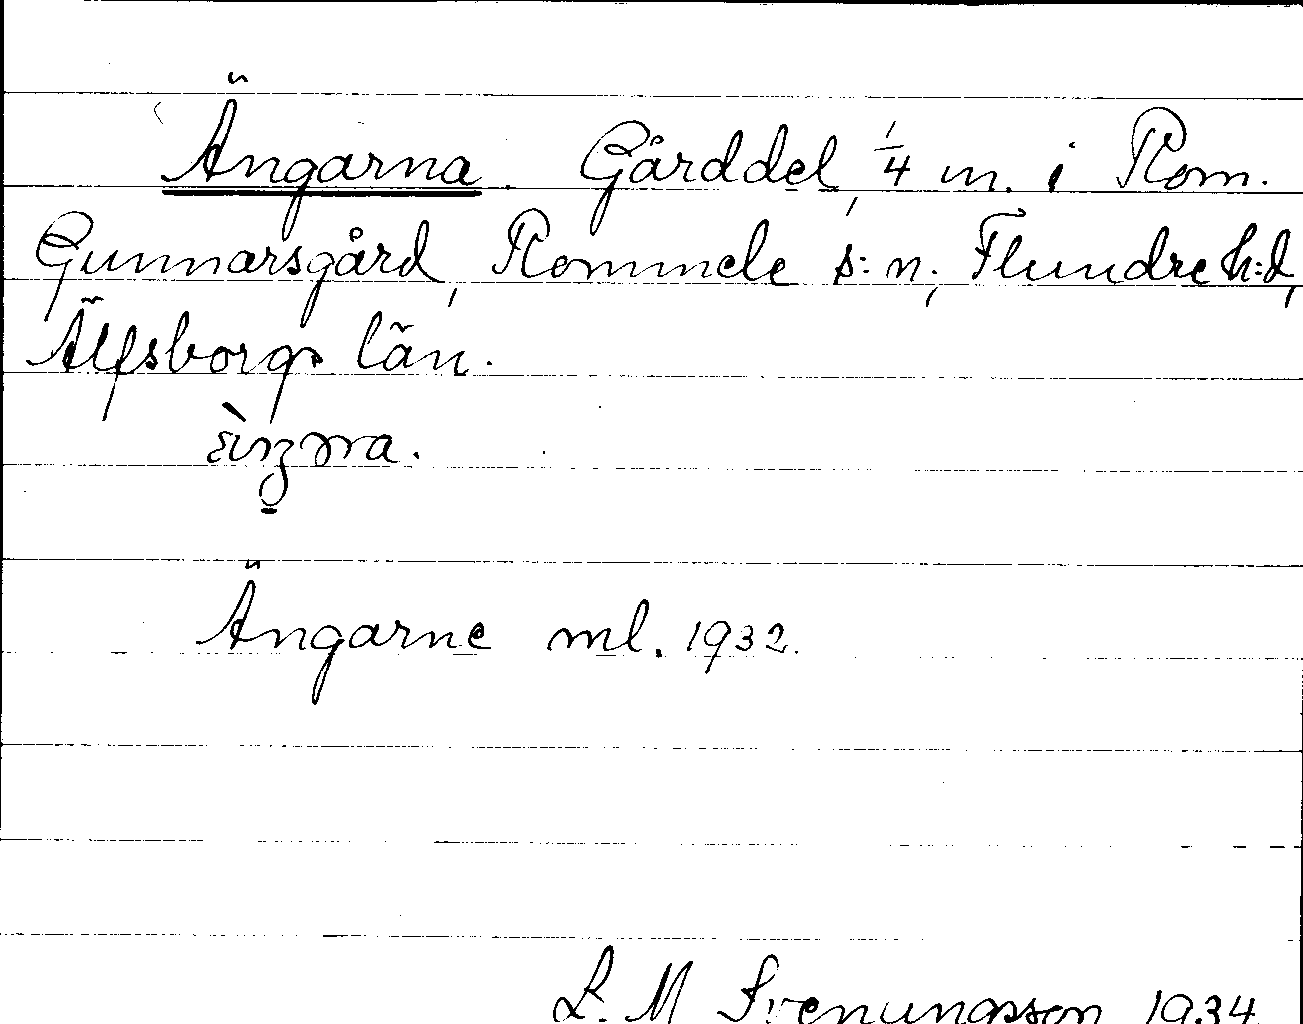 Ängarna. Gårddel, 1/4 m. i Rom.
Gunnarsgård, Rommele s:n, Flundre h:d,
Älfsborgs län.
Ängarne ml. 1932.
L. M Svenungsson 1934